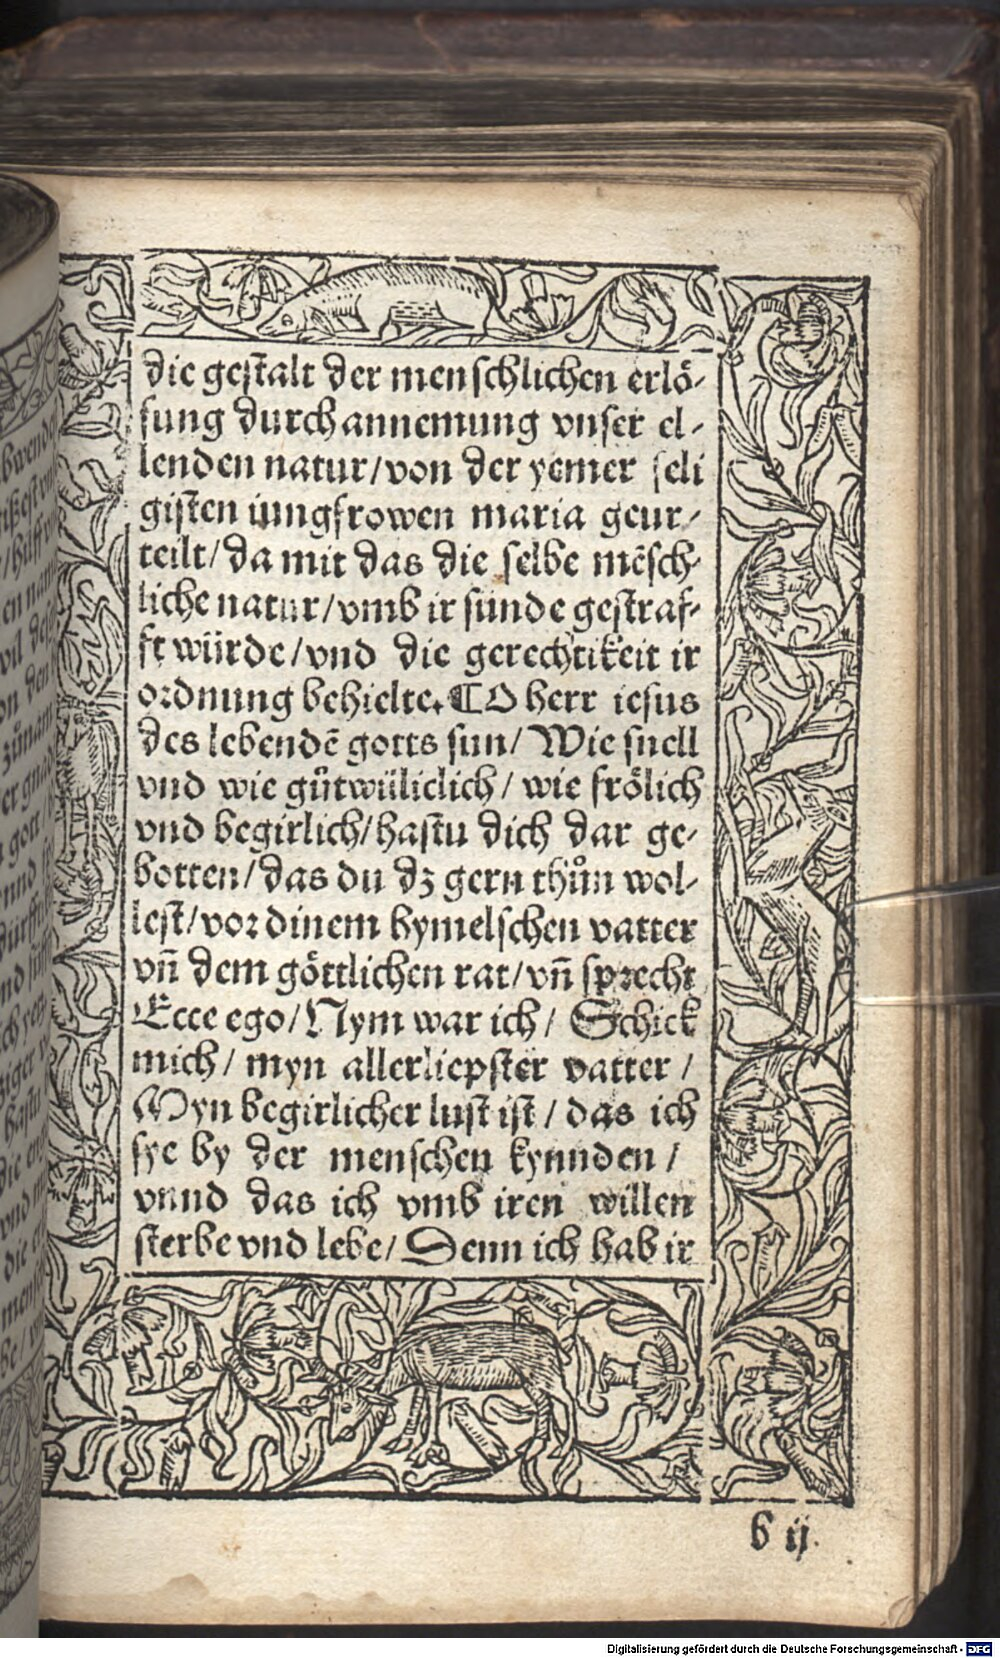 die gestalt der menschlichen erlö-
sung durch annemung vnser el-
lenden natur/von der yemer seli
gisten iungfrowen maria geur-
teilt/da mit das die selbe mẽsch-
liche natur/vmb ir sünde gestraf-
ft würde/vnd die gerechtikeit ir
ordnung behielte. ¶O herr iesus
des lebendẽ gotts sun/Wie snell
vnd wie gůtwüliclich/wie frölich
vnd begirlich/hastu dich dar ge-
botten/das du dz gern thůn wol-
lest/vor dinem hymelschen vatter
vñ dem göttlichen rat/vñ sprecht
Ecce ego/Nym war ich/Schick
mich/myn allerliepster vatter/
Myn begirlicher lust ist/das ich
sye by der menschen kynnden/
vnnd das ich vmb iren willen
sterbe vnd lebe/Denn ich hab ir
b ij.
Digitalisierung gefördert durch die Deutsche Forschungsgemeinschaft - DFG